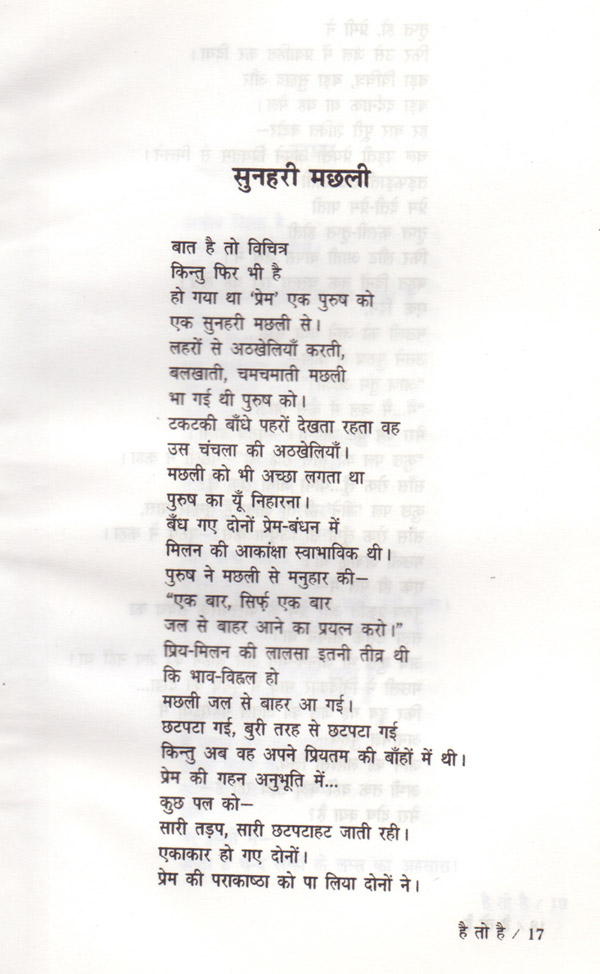 सुनहरी मछली
बात है तो विचित्र
किन्तु फिर भी है
हो गया था ‘प्रेम’ एक पुरुष को
एक सुनहरी मछली से।
लहरों से अठखेलियाँ करती,
बलखाती, चमचमाती मछली
भा गई थी पुरुष को।
टकटकी बाँधे पहरों देखता रहता वह
उस चंचला की अठखेलियाँ।
मछली को भी अच्छा लगता था
पुरुष का यूँ निहारना।
बँध गए दोनों प्रेम-बंधन में
मिलन की आकांक्षा स्वाभाविक थी।
पुरुष ने मछली से मनुहार की–
“एक बार, सिर्फ़ एक बार
जल से बाहर आने का प्रयत्न करो।”
प्रिय-मिलन की लालसा इतनी तीव्र थी
कि भाव-विह्वल हो
मछली जल से बाहर आ गई।
छटपटा गई, बुरी तरह से छटपटा गई
किन्तु अब वह अपने प्रियतम की बाँहों में थी।
प्रेम की गहन अनुभूति में...
कुछ पल को–
सारी तड़प, सारी छटपटाहट जाती रही।
एकाकार हो गए दोनों।
प्रेम की पराकाष्ठा को पा लिया दोनों ने।
है तो है / 17